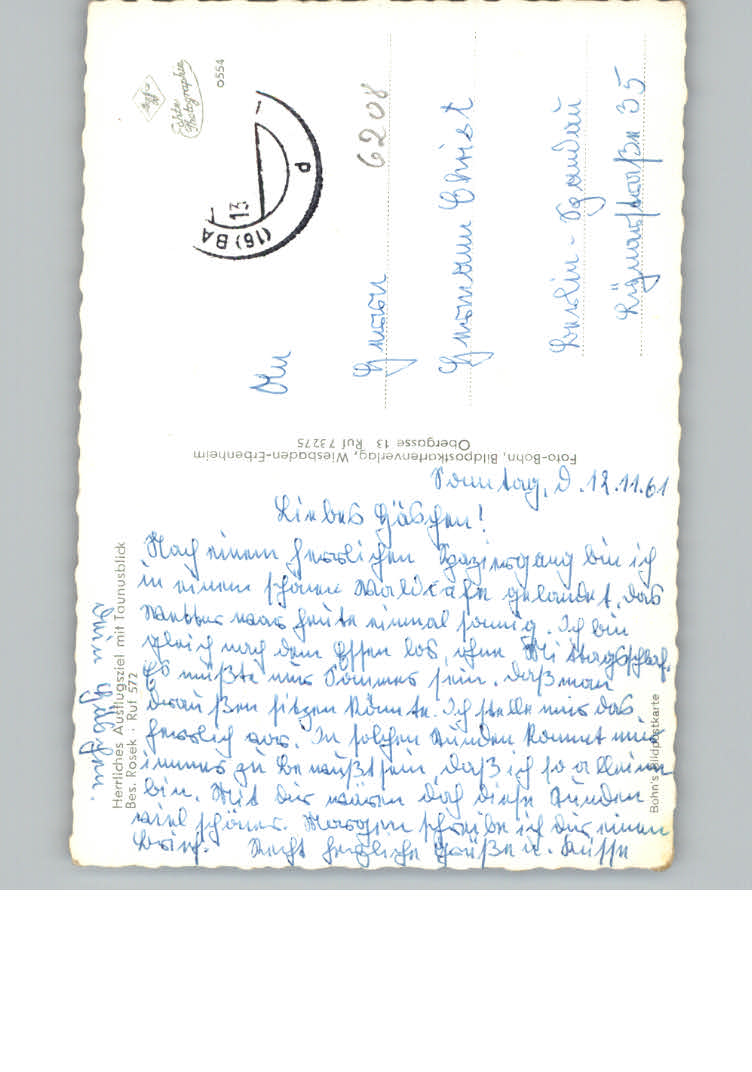 Sonntag, d. 12.11.61
Liebes Häschen!
Nach einem herrlichen Spaziergang bin ich
in einem schönen Waldkafe gelandet, das
Wetter war heute einmal sonnig. Ich bin
gleich nach dem Essen los, ohne Mittagsschlaf.
Es müßte nur Sommer sein, daß man
draußen sitzen könnte. Ich stelle mir das
herrlich vor. In solchen Stunden kommt mir
immer zu bewußtsein, daß ich so alleine
bin. Mit dir wären doch diese Stunden
viel schöner. Morgen schreibe ich dir einen
Brief. Recht herzliche Grüße u. Küsse
Dein
Herrliches Ausflugsziel mit Taunusblick
Bes. Rosek · Ruf 572
Bohn's Bildpostkarte
Foto-Bohn, Bildpostkartenverlag, Wiesbaden-Erbenheim
Obergasse 13 Ruf 73275
An
Herrn
Hermann Christ
Berlin-Spandau
35
6208
(16) BA
13
d
Agfa
Echte
Photographie
0554